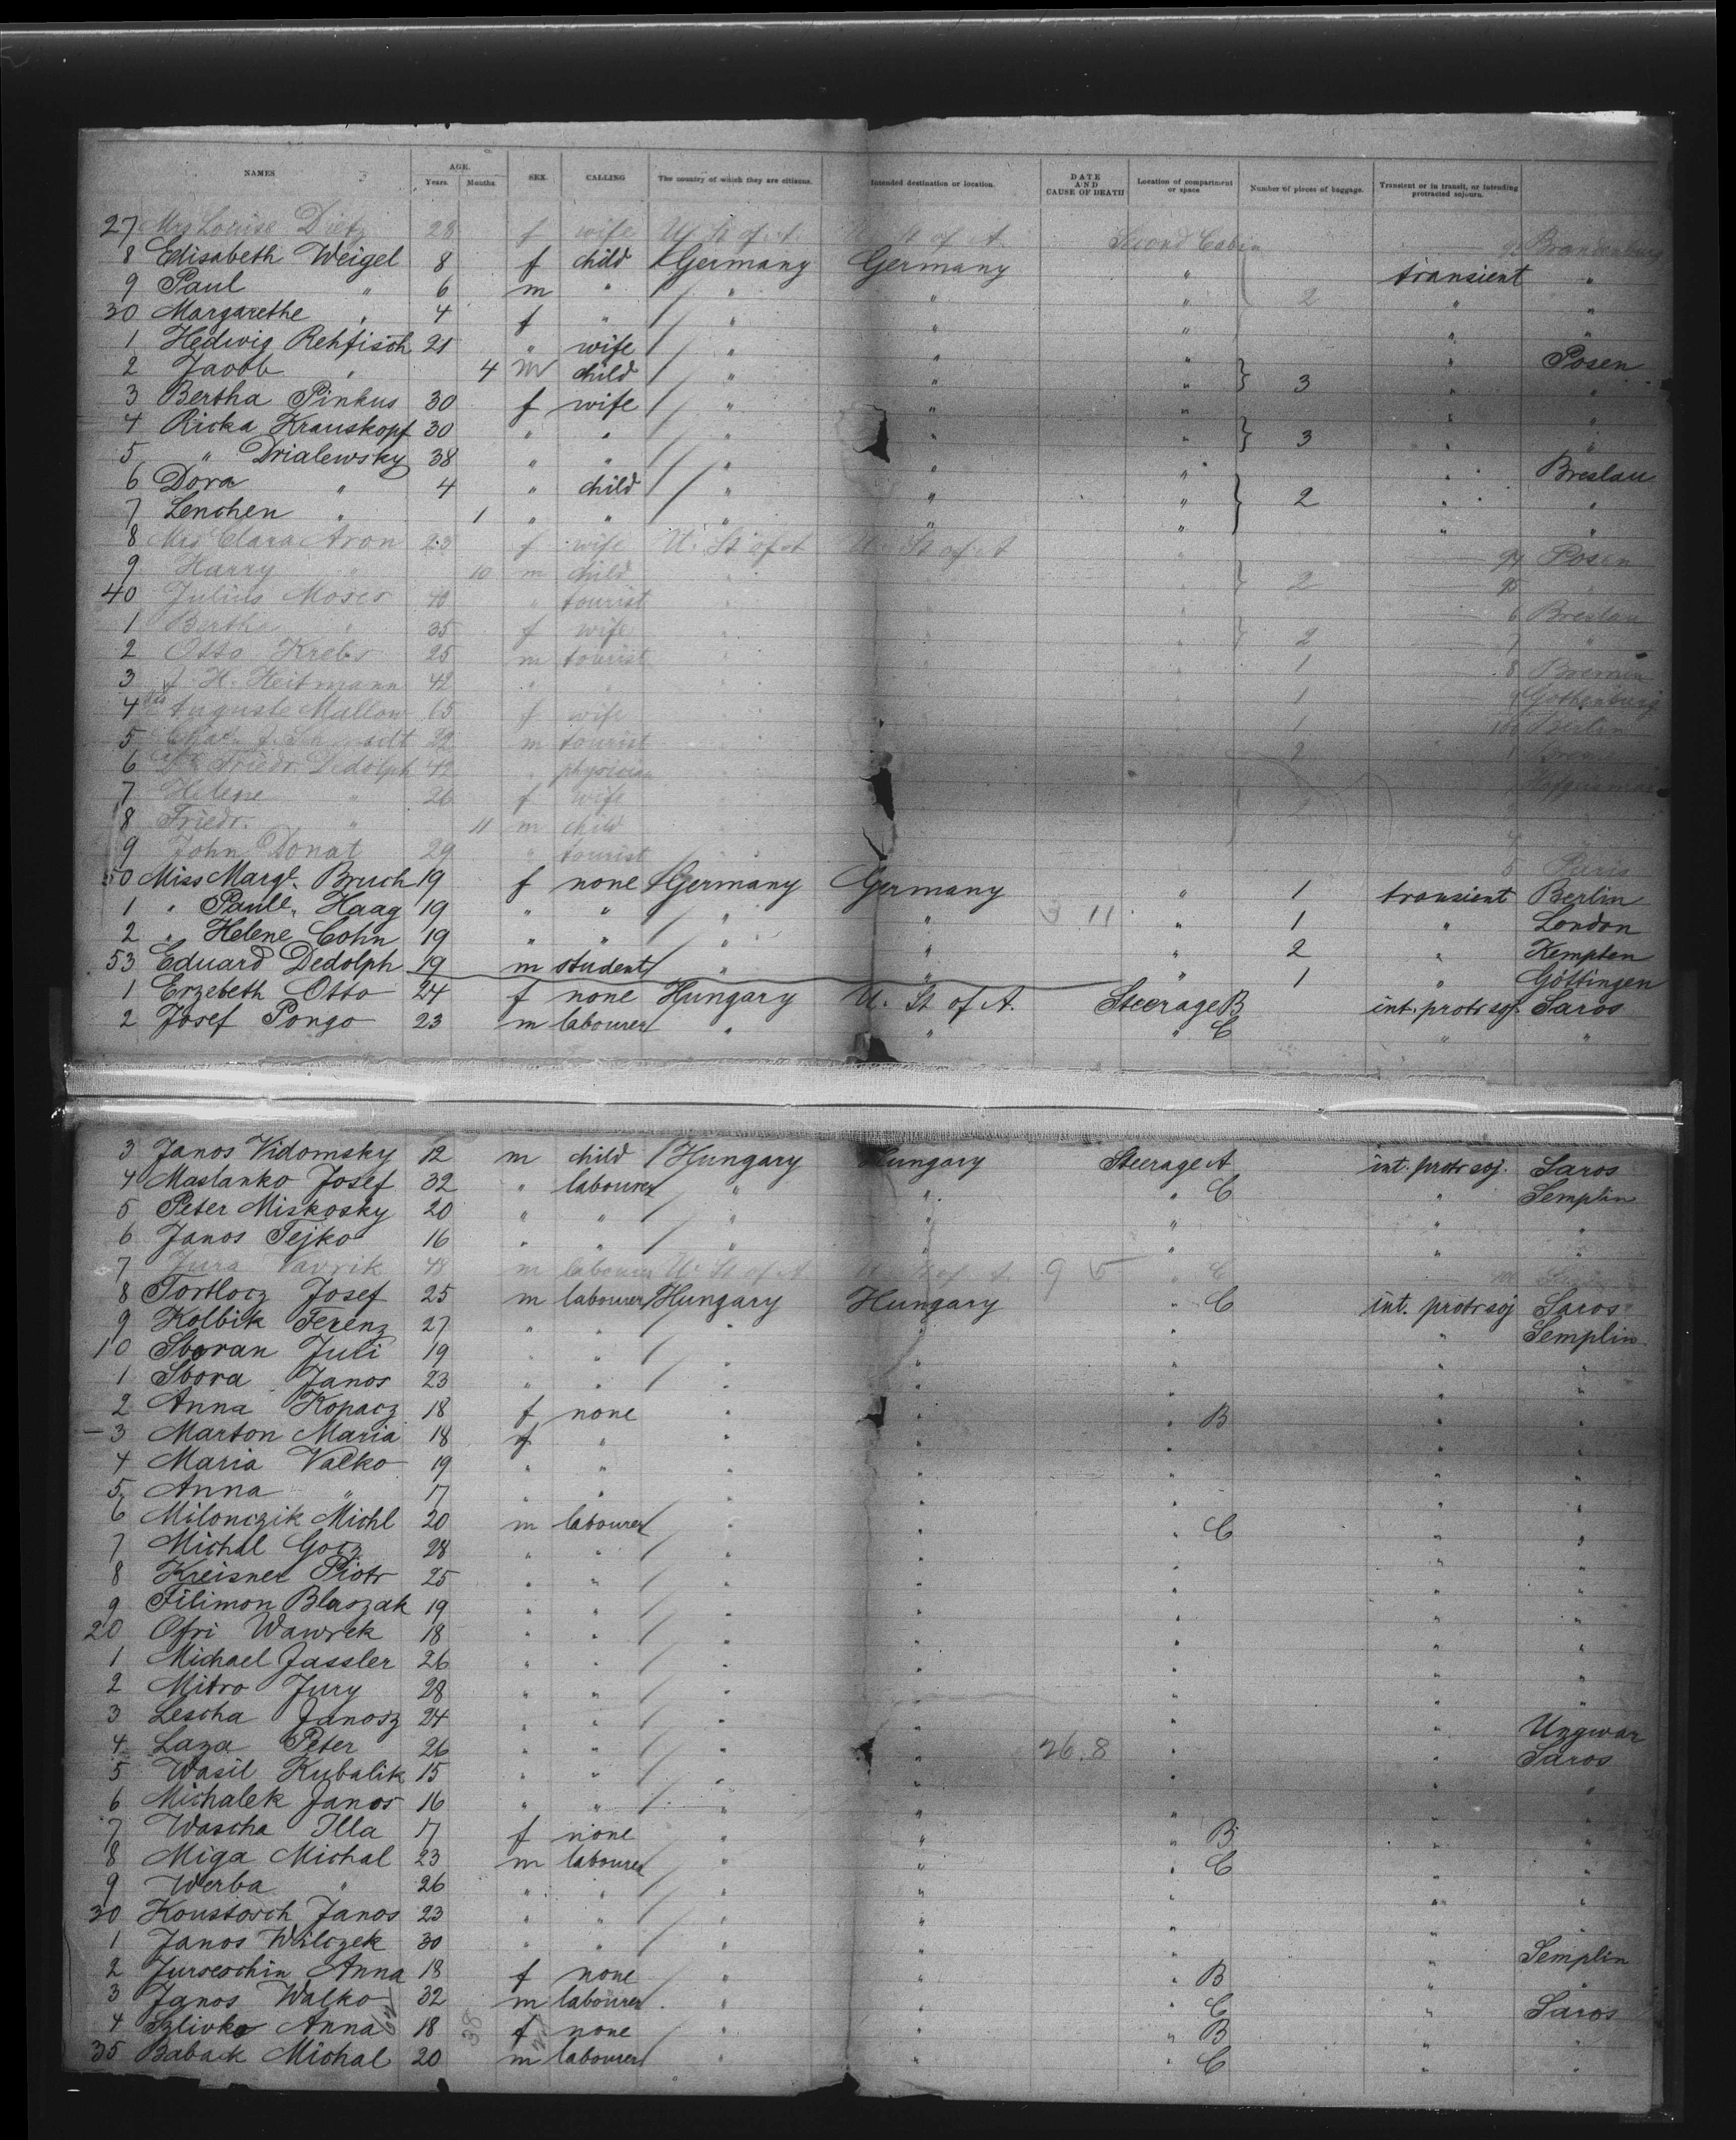 NAMES AGE. Years. Months. SEX. CALLING The country of which they are citizens. Intended destination or location. DATE AND CAUSE OF DEATH Location of compartment or space Number of pieces of baggage. Transient or in transit, or intending protracted sojourn.
27 Mrs Louise Dietz 28 f wife U. St of. A. U. St of A. Second Cabin Brandenburg
8 Elisabeth Weigel 8 f child Germany Germany " transient "
9 Paul " 6 m " " " " 2 " "
30 Margarethe " 4 f " " " " " "
1 Hedwig Rehfisch 21 " wife " " " " Posen
2 Jacob " 4 m child " " " 3 " "
3 Bertha Pinkus 30 f wife " " " " "
4 Ricka Krauskopf 30 " " " " " 3 " "
5 " Drialewsky 38 " " " " " " Breslau
6 Dora " 4 " child " " " 2 " "
7 Lenchen " 1 " " " " " " "
8 Mrs Clara Aron 23 f wife U. St of A U. St of A " 94 Posen
9 Harry " 10 m child " " " 2 95 "
40 Julius Moses 40 " tourist " " " 6 Breslau
1 Bertha " 35 f wife " " " 2 7 "
2 Otto Krebs 25 m tourist " " " 1 8 Bremen
3 J. H. Heitmann 42 " " " " " 1 9
4 Mrs Auguste Mallow 65 f wife " " " 1 100 Berlin
5 32 m tourist " " " 2 1
6 Dr. Friedr. Dedolph 42 " physician " " "
7 Helene " 26 f wife " " "
8 Friedr. " 11 m child " " " 4
9 John Donat 29 " tourist " " " 5 Paris
50 Miss Margt. Bruch 19 f none Germany Germany " 1 transient Berlin
1 " Paule. Haag 19 " " " " 3 11 " 1 " London
2 " Helene Cohn 19 " " " " " 2 " Kempten
53 Eduard Dedolph 19 m student " " " 1 " Göttingen
1 Erzebeth Otto 24 f none Hungary U. St of A. Steerage B int. protr soj. Saros
2 Josef Pongo 23 m labourer " " " C " "
3 Janos Vidomsky 12 m child Hungary Hungary Steerage A int. protr soj. Saros
4 Maslanko Josef 32 " labourer " " " C " Semplin
5 Peter Miskosky 20 " " " " " " "
6 Janos Tejko 16 " " " " " " "
7 Jura Vavrik 48 m labourer U. St of A U. St of A. 9 5 " C
8 Tortlocz Josef 25 m labourer Hungary Hungary " C int. protr soj Saros
9 Kolbik Ferenz 27 " " " " " " Semplin
10 Sboran Juli 19 " " " " " " "
1 Sbora Janos 23 " " " " " " "
2 Anna Kopacz 18 f none " " " B " "
3 Marton Maria 18 f " " " " " "
4 Maria Valko 19 " " " " " " "
5 Anna " 17 " " " " " " "
6 Milonczik Michl 20 m labourer " " " C " "
7 Michal Gocz 28 " " " " " " "
8 Kreisner Piotr 25 " " " " " " "
9 Filimon Blaszak 19 " " " " " " "
20 Ofri Wawrek 18 " " " " " " "
1 Michael Jassler 26 " " " " " " "
2 Mitro Jury 28 " " " " " " "
3 Lescha Janosz 24 " " " " " " Ungwar
4 Laza Peter 26 " " " " 26.8 " " Saros
5 Wasil Kubalik 15 " " " " " " "
6 Michalek Janos 16 " " " " " " "
7 Wascha Illa 17 f none " " " B " "
8 Miga Michal 23 m labourer " " " C " "
9 Werba " 26 " " " " " " "
30 Koustosch Janos 23 " " " " " " "
1 Janos Wilczek 30 " " " " " " Semplin
2 Jurseschin Anna 18 f none " " " B " "
3 Janos Walko 32 m labourer " " " C " Saros
4 Szlivka Anna 18 38 f none " " " B " "
35 Baback Michal 20 m labourer " " " C " "